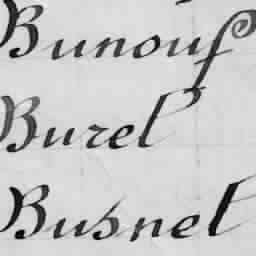 Bunouf
Burel
Busnel